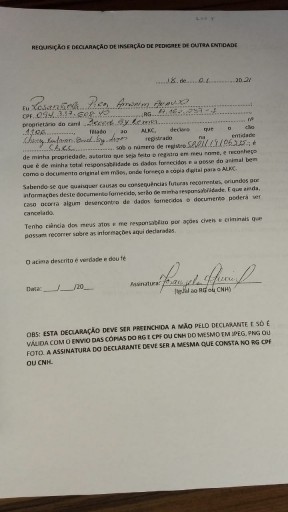 REQUISIÇÃO E DECLARAÇÃO DE INSERÇÃO DE PEDIGREE DE OUTRA ENTIDADE
18 de 01 2021
Eu
CPF RG
proprietário do canil nº
filiado ao ALKC, declaro que o cão
registrado na entidade
sob o número de registro , é
de minha propriedade, autorizo que seja feito o registro em meu nome, e reconheço
que é de minha total responsabilidade os dados fornecidos e a posse do animal bem
como o documento original em mãos, onde forneço e cópia digital para o ALKC.
Sabendo se que quaisquer causas ou consequências futuras recorrentes, oriundos por
informações deste documento fornecido, serão de minha responsabilidade. E que ainda,
caso ocorra algum desencontro de dados fornecidos o documento poderá ser
cancelado.
Tenho ciência dos meus atos e me responsabilizo por ações cíveis e criminais que
possam recorrer sobre as informações aqui declaradas.
O acima descrito é verdade e dou fé
Data: ___/___/20__ Assinatura:
(igual ao RG ou CNH)
OBS: ESTA DECLARAÇÃO DEVE SER PREENCHIDA A MÃO PELO DECLARANTE E SÓ É
VÁLIDA COM O ENVIO DAS CÓPIAS DO RG E CPF OU CNH DO MESMO EM JPEG, PNG OU
FOTO. A ASSINATURA DO DECLARANTE DEVE SER A MESMA QUE CONSTA NO RG CPF
OU CNH.